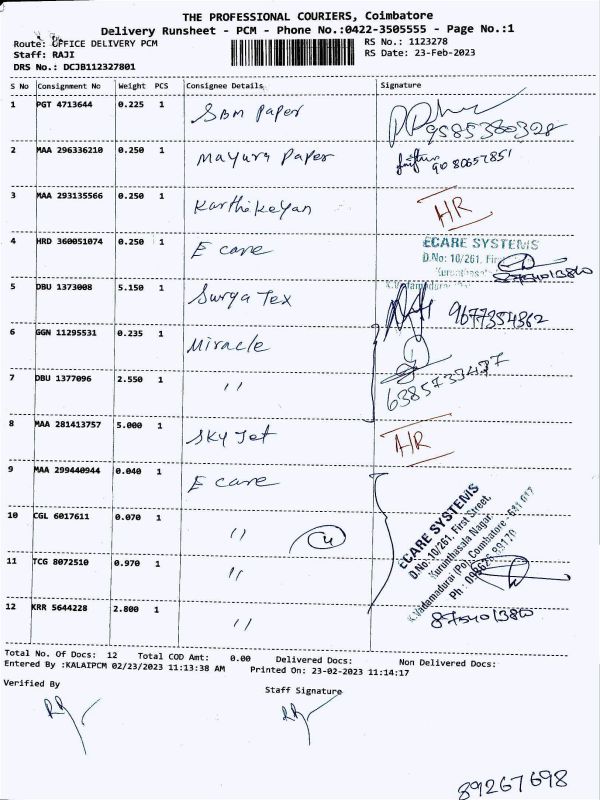 THE PROFESSIONAL COURIERS, Coimbatore
Delivery Runsheet - PCM - Phone No.:0422-3505555 - Page No.:1
Route: OFFICE DELIVERY PCM
Staff: RAJI
DRS No.: DCJB112327801
RS No.: 1123278
RS Date: 23-Feb-2023
S No Consignment No Weight PCS Consignee Details Signature
1 PGT 4713644 0.225 1 SBM Paper 9585380328
2 MAA 296336210 0.250 1 Mayura Paper
3 MAA 293135566 0.250 1 Karthikeyan HR
4 HRD 360051074 0.250 1 E care
ECARE SYSTEMS
D.No: 10/261, First
8754013860
5 DBU 1373008 5.150 1 Surya Tex 9677354362
6 GGN 11295531 0.235 1 Miracle
7 DBU 1377096 2.550 1 " 6385733437
8 MAA 281413757 5.000 1 Sky Jet HR
9 MAA 299440944 0.040 1 E care
10 CGL 6017611 0.070 1 " 4
11 TCG 8072510 0.970 1 "
12 KRR 5644228 2.800 1 "
ECARE SYSTEMS
D.No: 10/261, First Street,
Kurunthasala Nagar,
K.Vadamadurai (Po), Coimbatore - 641 017
8754013860
Total No. Of Docs: 12 Total COD Amt: 0.00 Delivered Docs: Non Delivered Docs:
Entered By :KALAIPCM 02/23/2023 11:13:38 AM Printed On: 23-02-2023 11:14:17
Verified By
Staff Signature
89267698